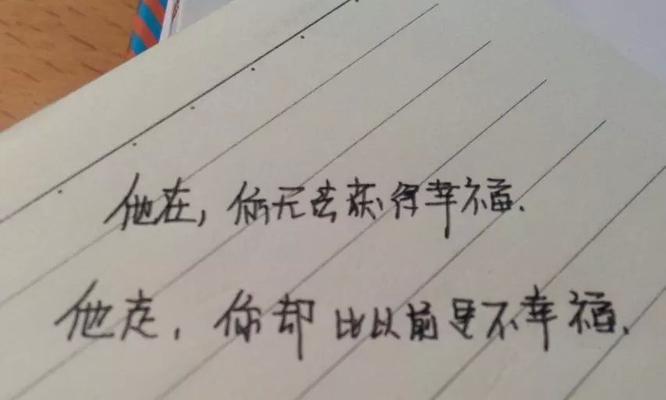 他在，你无法获得幸福.
他走，你却比以前更不幸福.